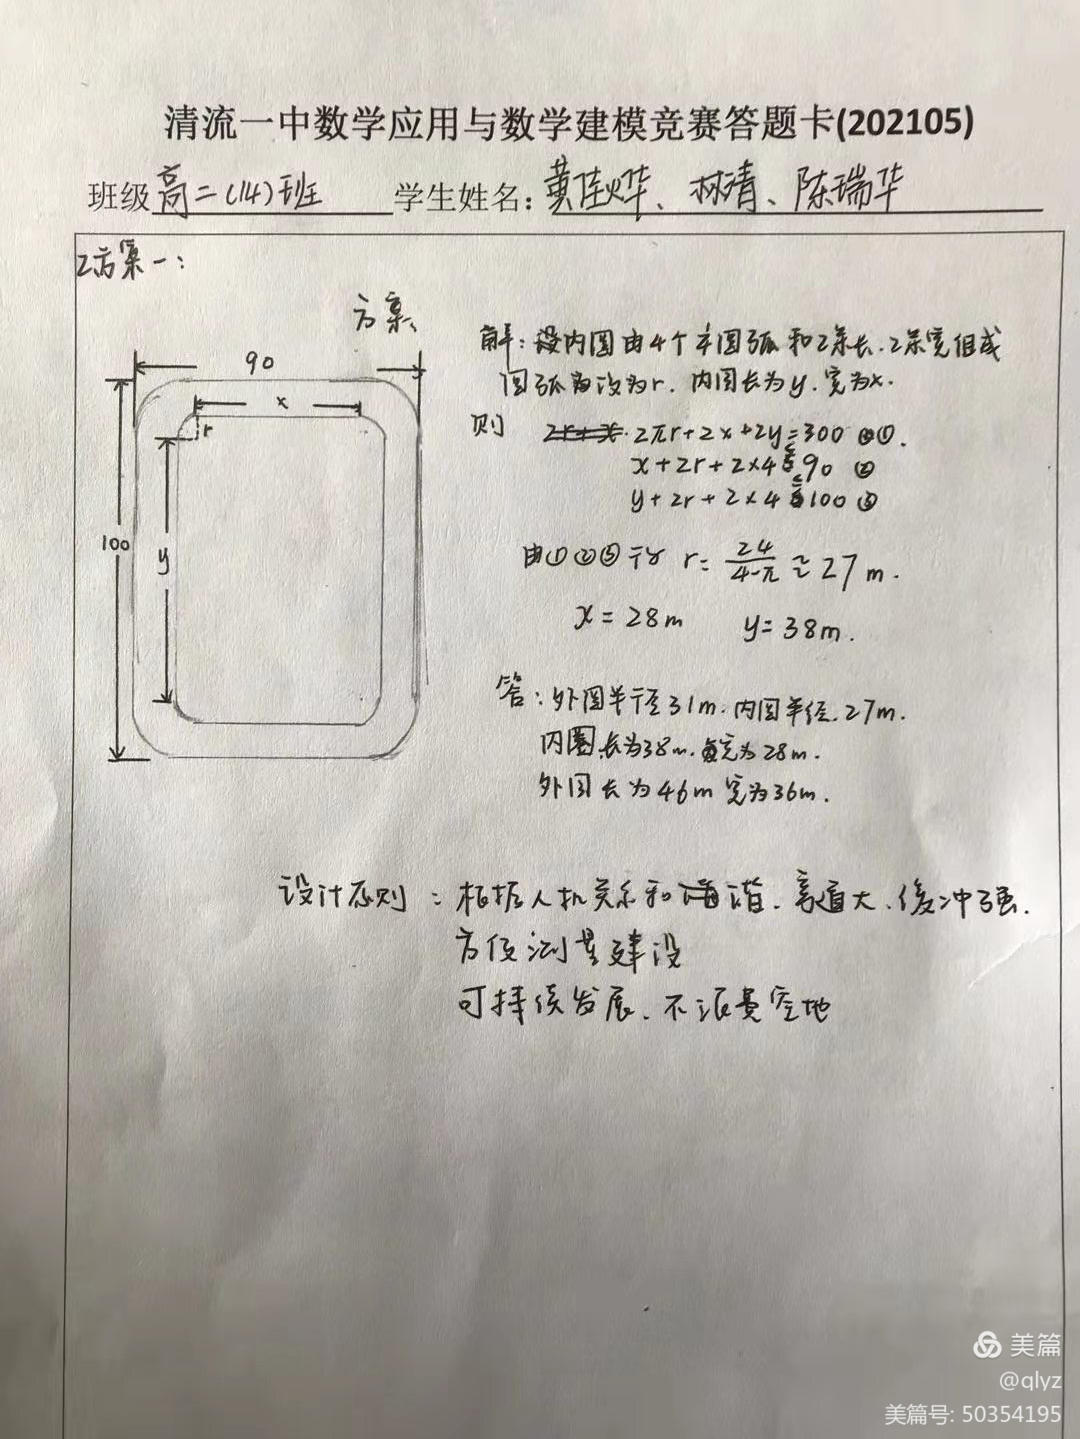 清流一中数学应用与数学建模竞赛答题卡(202105)
班级高二(14)班 学生姓名:黄佳烨、林清、陈瑞华
2方案一:
方案、
90
x
r
100
y
解:设内圈由4个圆弧和2条长.2条宽组成
圆弧设为r.内圈长为y.宽为x.
则 2πr+2x+2y=300 ①.
x+2r+2×4≤90 ②
y+2r+2×4≤100 ③
由①②③可 r=24/4-π≈27m.
x=28m y=38m.
答:外圆半径31m.内圆半径.27m.
内圈长为38m.宽为28m.
外圈长为46m宽为36m.
设计原则:根据人机关系和谐.弯道大、缓冲强.
方便测量建设
可持续发展、不浪费空地
美篇
@qlyz
美篇号: 50354195